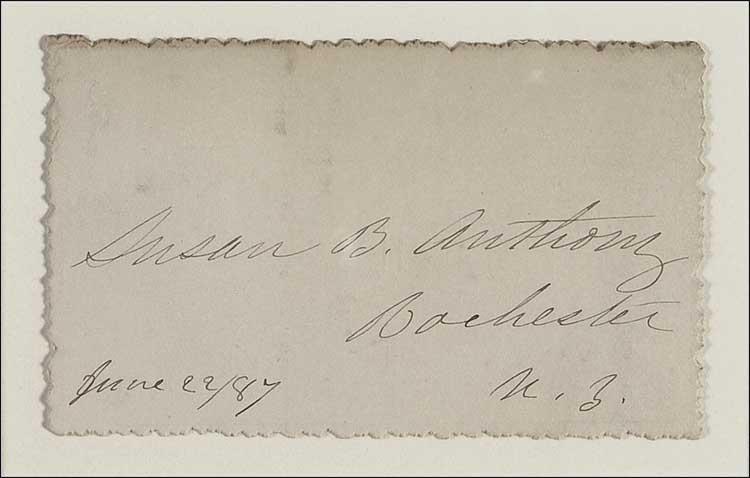 Susan B. Anthony
Rochester
N. Y.
June 22/87